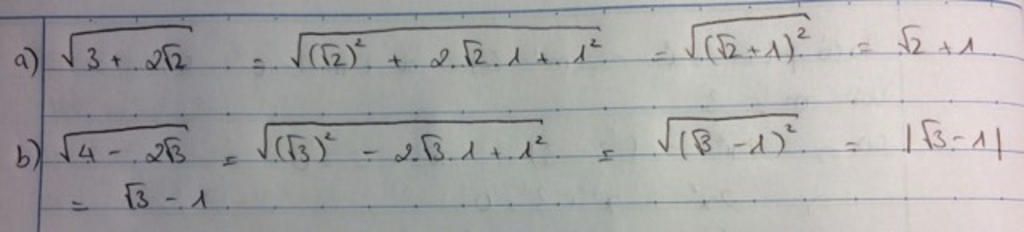 a) √(3 + 2√2) = √((√2)² + 2.√2.1 + 1²) = √((√2+1)²) = √2 + 1
b) √(4 - 2√3) = √((√3)² - 2.√3.1 + 1²) = √((√3 - 1)²) = |√3 - 1|
= √3 - 1